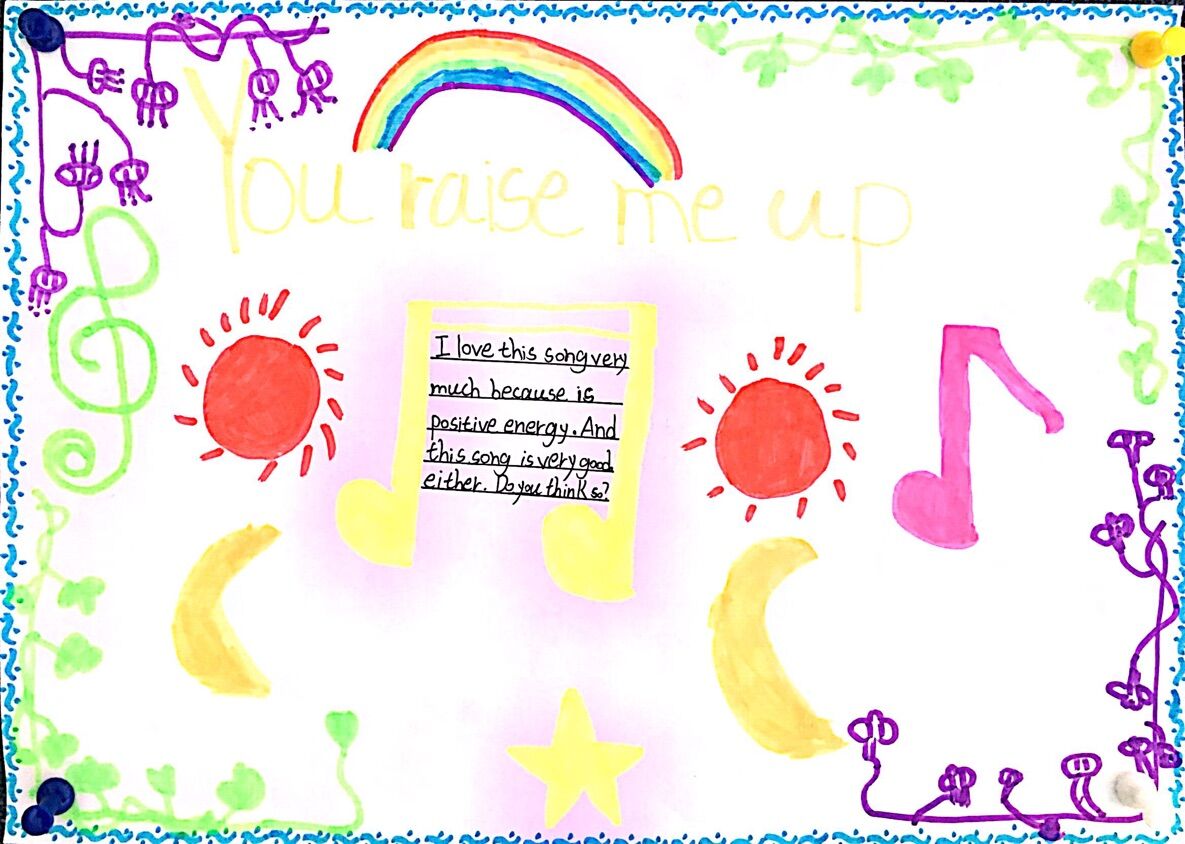 You raise me up
I love this song very
much because is
positive energy. And
this song is very good
either. Do you think so?